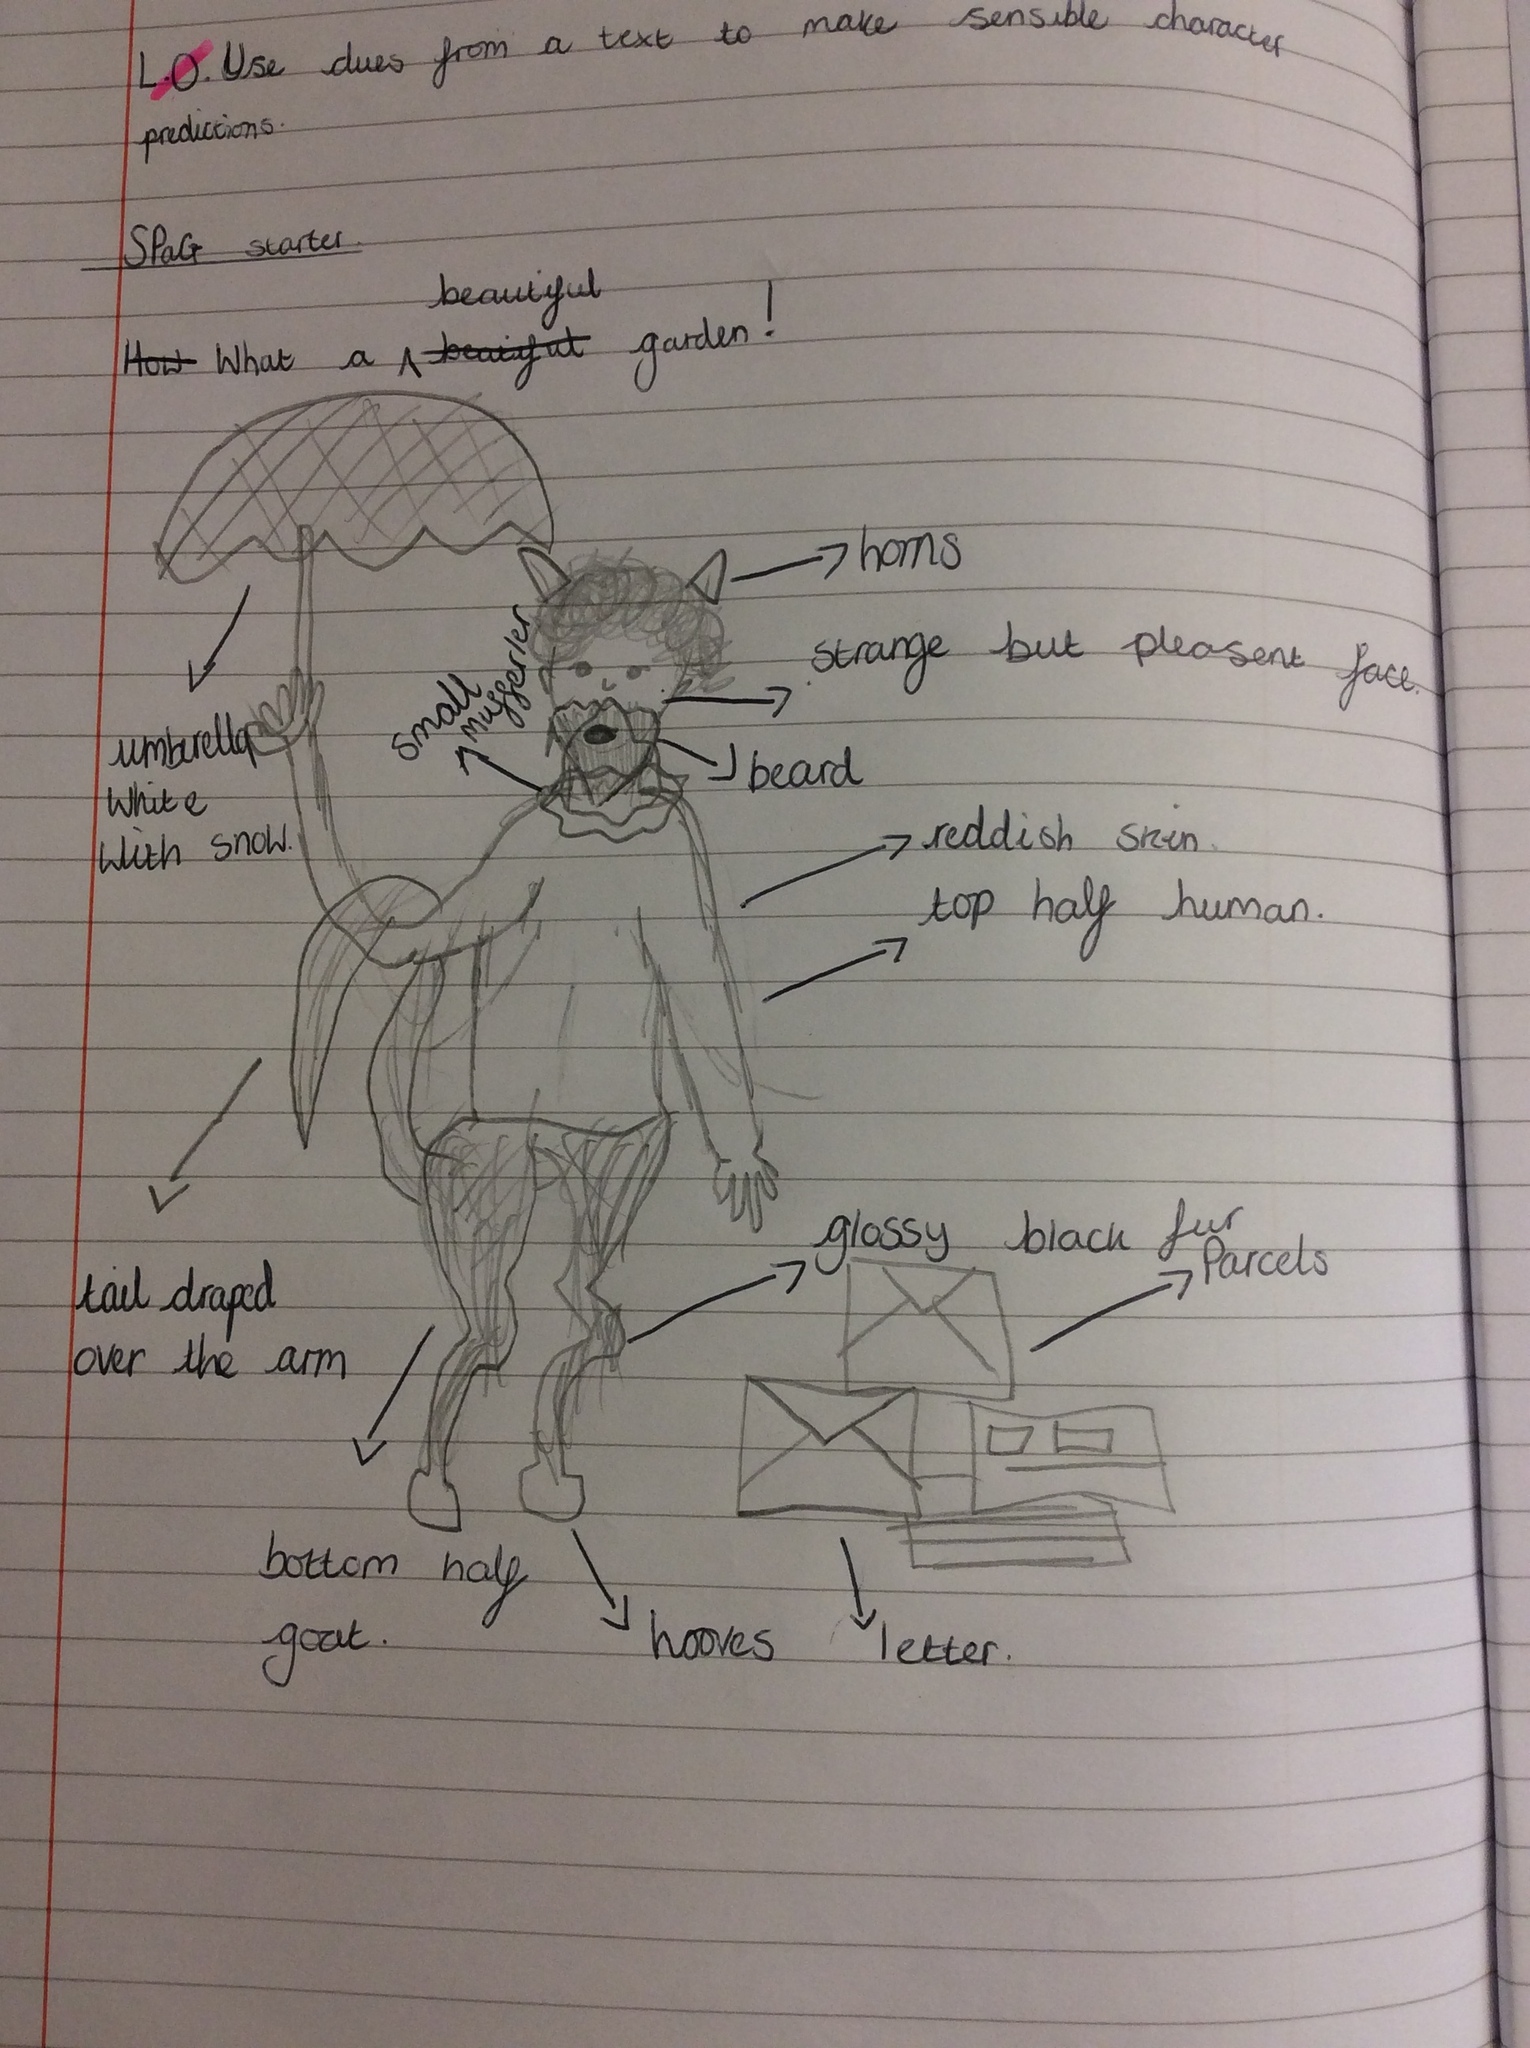 L.O. Use clues from a text to make sensible character
predictions.
SPaG starter.
beautiful
How What a ^ beatiful garden!
horns
strange but pleasent face.
small
mufferler
beard
umbrella
white
with snow.
reddish skin.
top half human.
glossy black fur
Parcels
tail draped
over the arm
bottom half
goat.
hooves
letter.